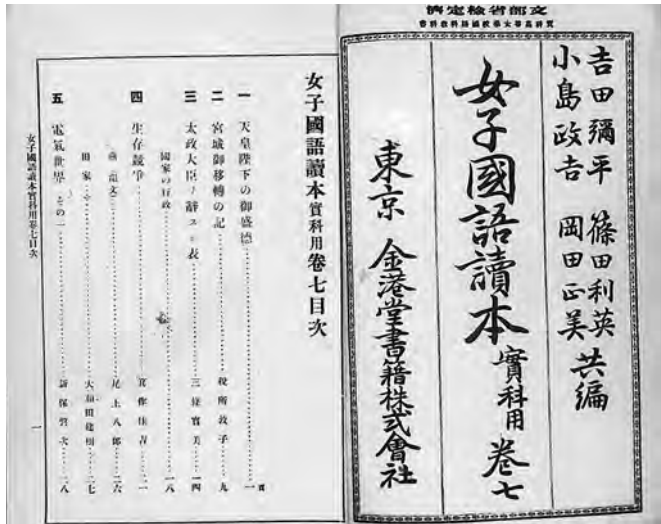 文部省檢定濟
實科高等女學校國語科教科書
吉田彌平 篠田利英
小島政吉 岡田正美 共編
女子國語讀本 實科用 卷七
東京 金港堂書籍株式會社
女子國語讀本實科用卷七目次
一 天皇陛下の御盛德……一頁
二 宮城御移轉の記……稅所敦子……九
三 太政大臣ヲ辭スル表……三條實美……一四
國家の行政……一八
四 生存競爭……箕作佳吉……二一
(韻文)……尾上八郎……二六
田家……大和田建樹……二七
五 電氣世界 その一……新保磐次……二八
女子國語讀本實科用卷七目次
一